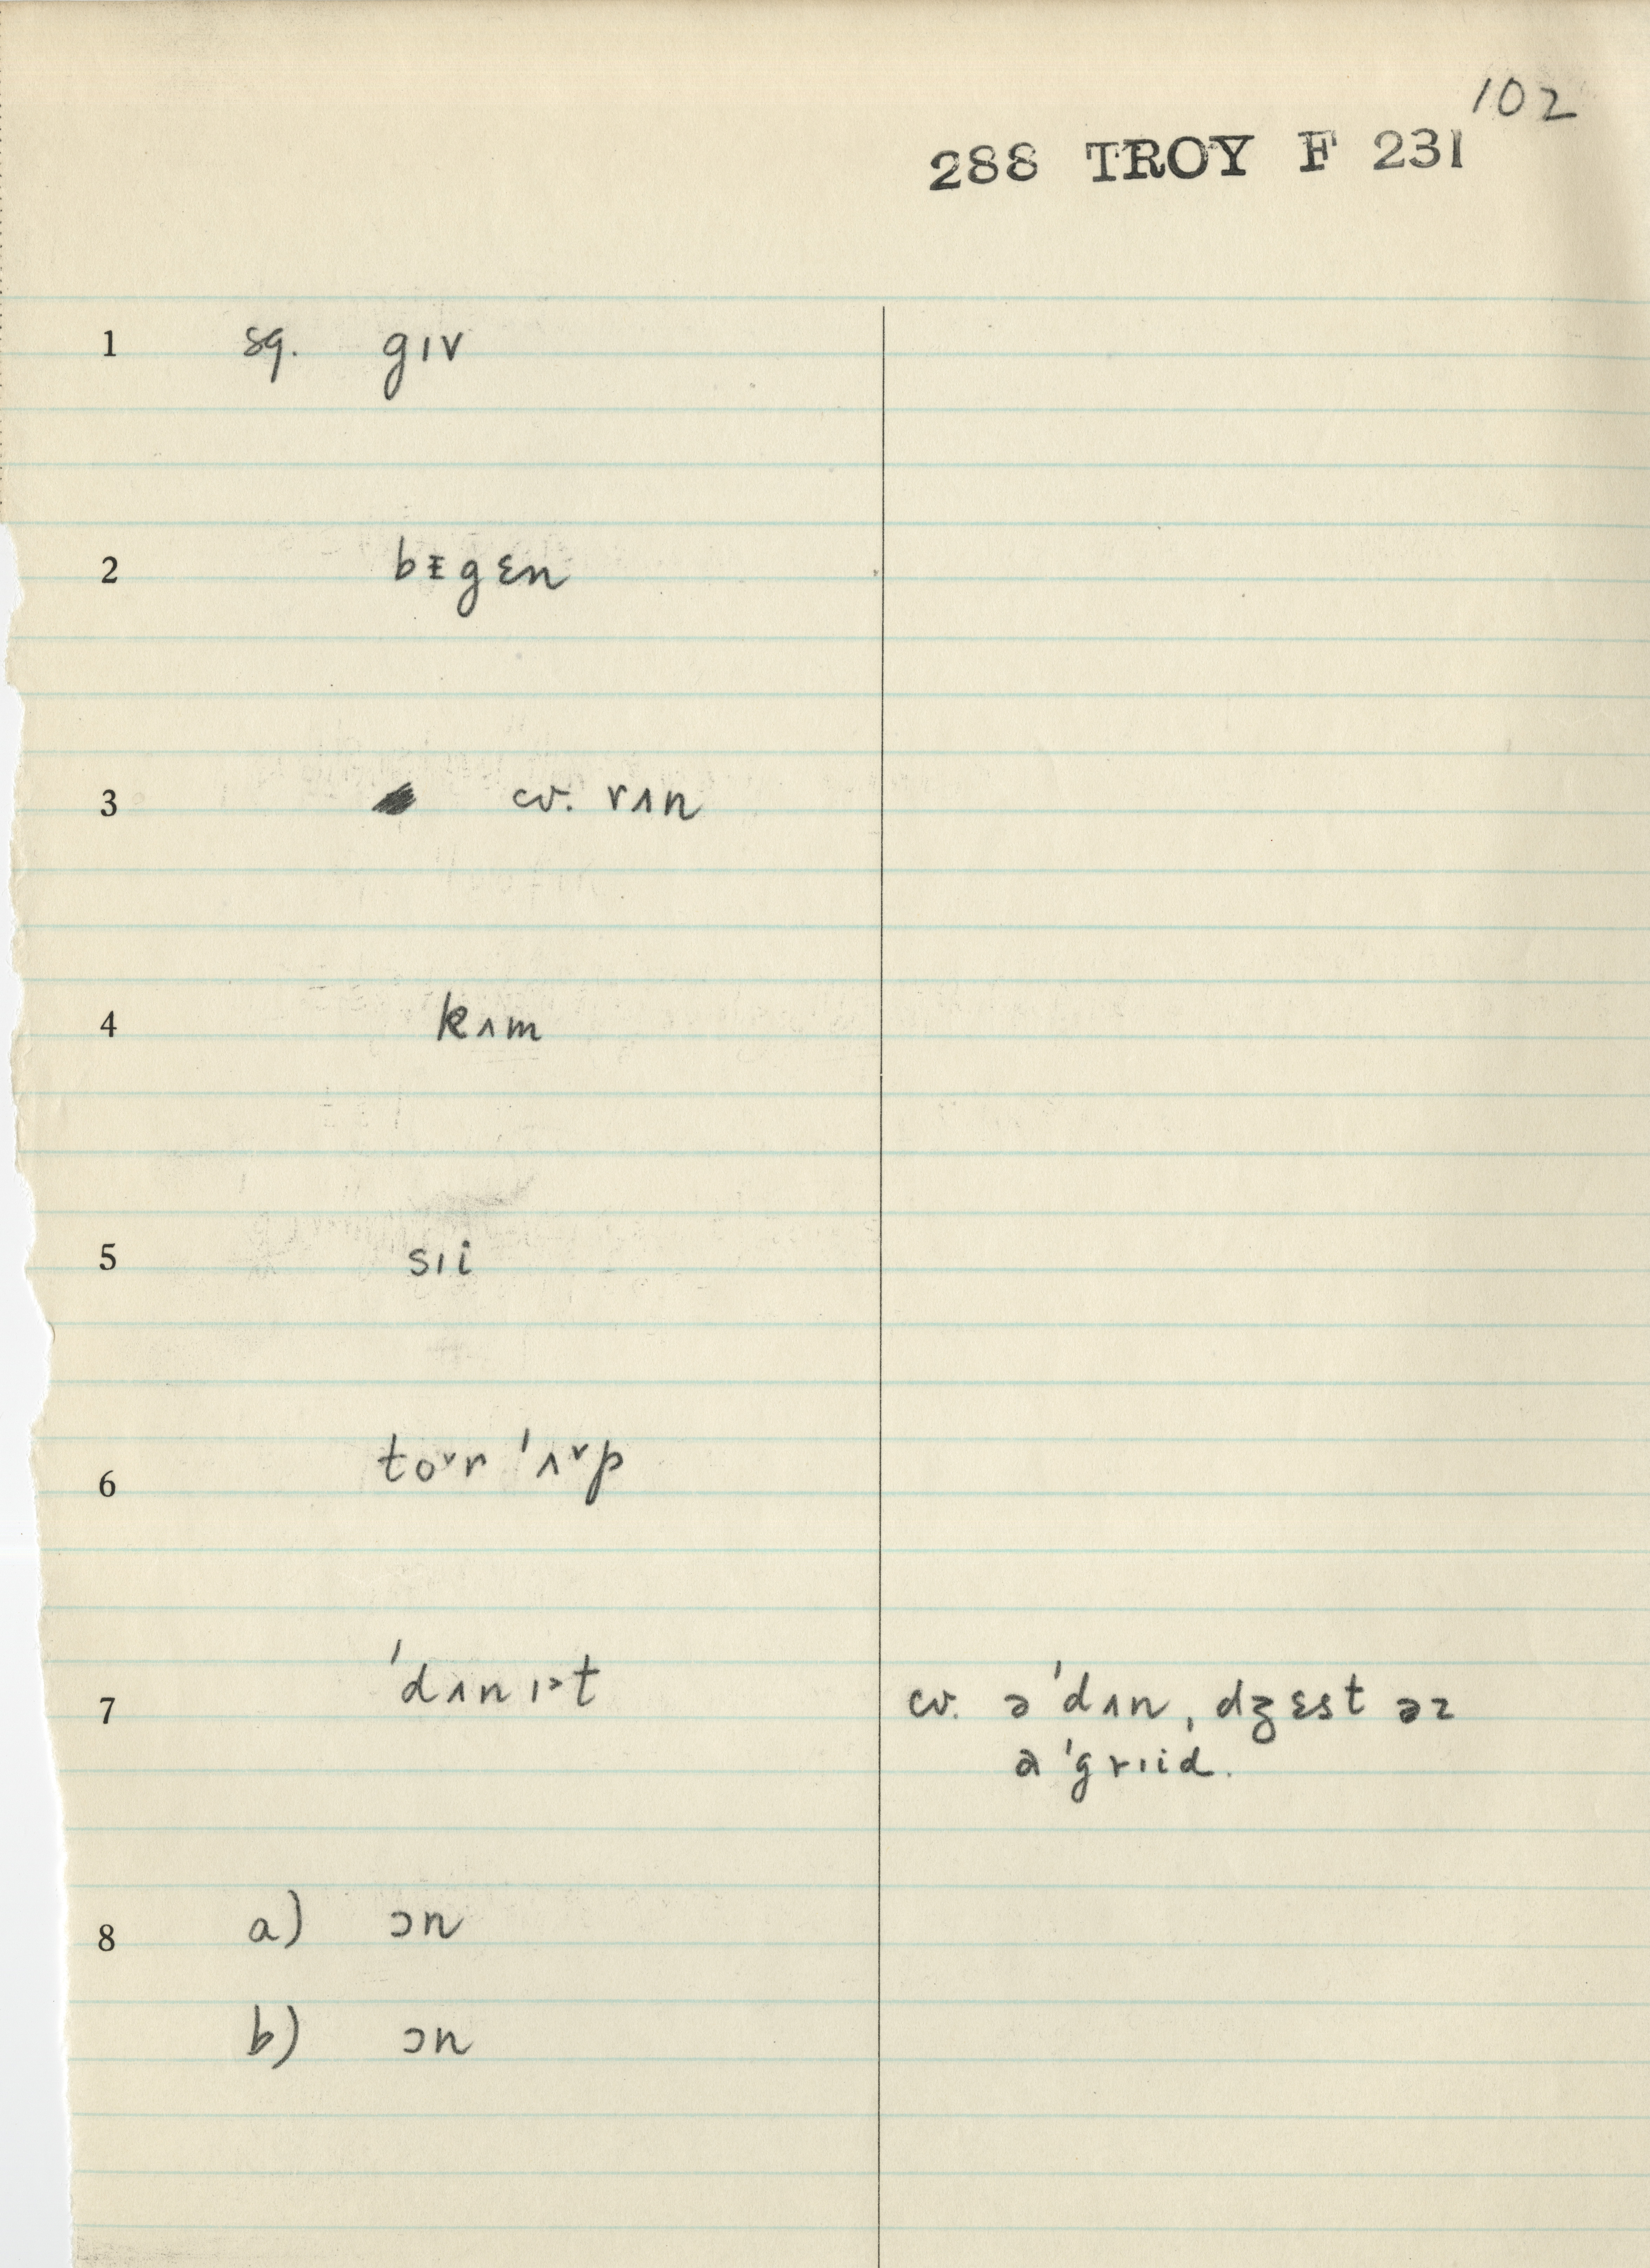 102
288 TROY F 231
1 sg. gɪv
2 bᵻgɛn
3 cv. rʌn
4 kʌm
5 sɪi
6 toᵛr ˈʌᵛp
7 ˈdʌn ɪ˃t cv. əˈdʌn, dʒɛst əz
əˈgrɪid.
8 a) ɔn
b) ɔn